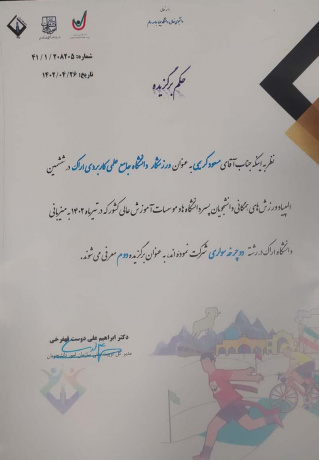 شماره: ۴۱ / ۱ / ۲۰۸۲۰۵
تاریخ: ۱۴۰۲/۰۴/۲۶
حکم برگزیده
نظر به اینکه جناب آقای مسعود کریمی به عنوان ورزشکار دانشگاه جامع علمی کاربردی اراک در ششمین
المپیاد ورزش های همگانی دانشجویان پسر دانشگاه ها و موسسات آموزش عالی کشور که در تیرماه ۱۴۰۲ به میزبانی
دانشگاه اراک در رشته دوچرخه سواری شرکت نموده اند، به عنوان برگزیده دوم معرفی می شوند.
دکتر ابراهیم علی دوست قهفرخی